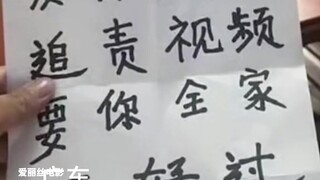 追责视频
要你全家
好过
爱丽丝电影